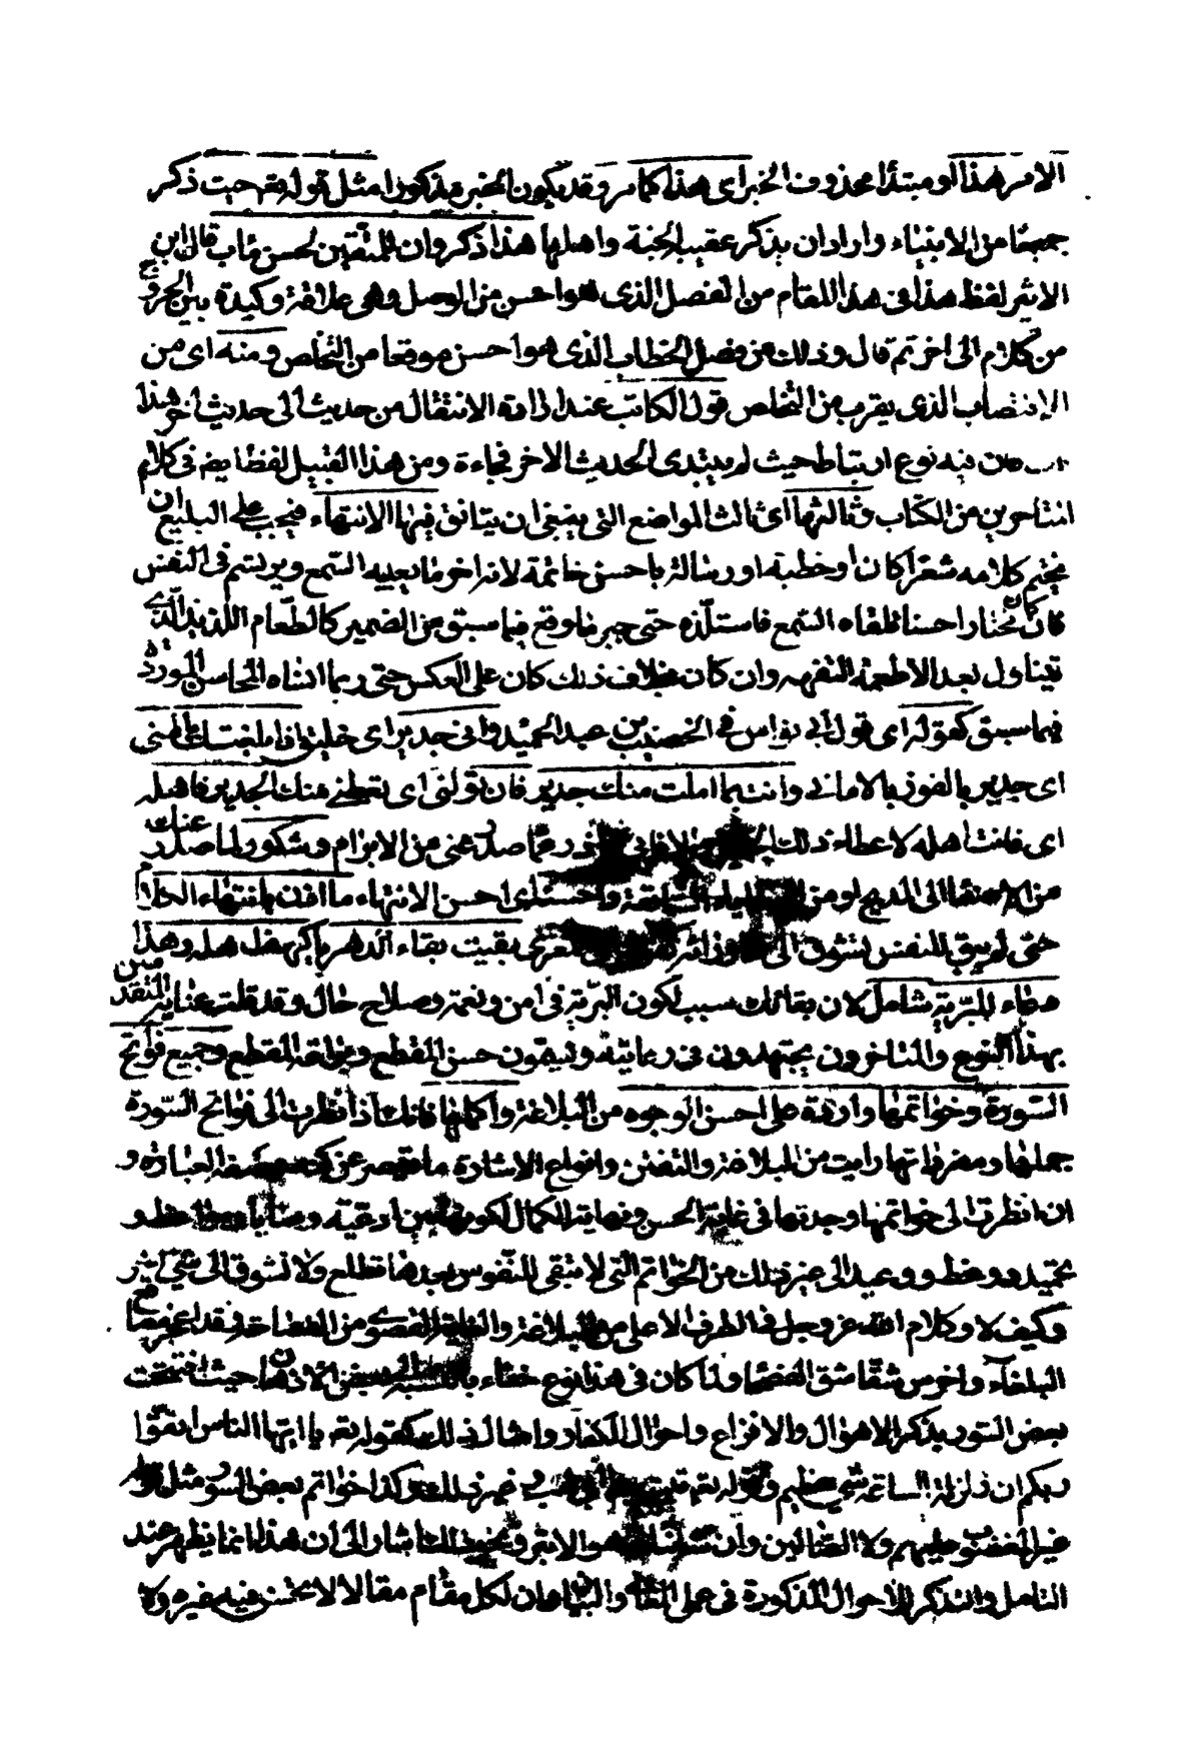 الامر هذا او مبتدأ محذوف الخبر اى هذا كما مر وقد يكون الخبر مذكورا مثل قوله تع حيث ذكر
جمعا من الانبياء واراد ان يذكر عقيبه الجنة واهلها هذا ذكر وان للمتقين لحسن مآب قال ابن
الاثير لفظ هذا فى هذا المقام من الفصل الذى هو احسن من الوصل وهى علاقة وكيدة بين الخروج
من كلام الى اخر ثم قال وذلك من فصل الخطاب الذى هو احسن موقعا من التخلص ومنه اى من
الاقتضاب الذى يقرب من التخلص قول الكاتب عند ارادة الانتقال من حديث الى حديث اخر هذا
فيه نوع ارتباط حيث لم يبتدى الحديث الاخر فجاءة ومن هذا القبيل لفظ ايضا فى كلام
المتأخرين من الكتاب وثالثها اى ثالث المواضع التى ينبغى ان يتانق فيها الانتهاء فيجب على البليغ ان
يختم كلامه شعرا كان او خطبة او رسالة باحسن خاتمة لانه اخر ما يعيه السمع ويرتسم فى النفس
فان كان مختارا حسنا تلقاه السمع فاستلذه حتى جبر ما وقع فيما سبق من الضمير كالطعام اللذيذ الذى
يتناول بعد الاطعمة التفهه وان كان بخلاف ذلك كان على العكس حتى ربما انساه المحاسن الموردة
فيما سبق كقوله اى قول ابى نواس فى الخصيب بن عبد الحميد وانى جدير اى خليق اذ بلغتك بالمنى
اى جدير بالفوز بالامانى وانت بما املت منك جدير فان تولنى اى تعطنى منك الجميل فاهله
اى فانت اهله لاعطاء ذلك والا فانى عاذر عما صدر عنى من الابرام وشكور لما صدر عنك
من الاصغاء الى المديح او من السابقة واحسنه اى احسن الانتهاء ما اذن بانتهاء الكلام
حتى لم يبق للنفس تشوق الى ما وراءه المعرى بقيت بقاء الدهر يا كهف اهله وهذا
دعاء للبرية شامل لان بقائك سبب لكون البرية فى امن ونعمة وصلاح حال وقد قلت عناية المتقدمين
بهذا النوع والمتأخرون يجتهدون فى رعايته ويسمون حسن المقطع وبراعة المقطع وجميع فواتح
السورة وخواتمها واردة على احسن الوجوه من البلاغة واكملها فانك اذا نظرت الى فواتح السورة
جملها ومفرداتها رايت من البلاغة والتفنن وانواع الاشارة ما تقصر عن كنه وصفه العبارة و
ان نظرت الى خواتمها وجدتها فى غاية الحسن ونهاية الكمال لكونها بين ادعية ووصايا ومواعظ و
تحميد ووعظ ووعيد الى غير ذلك من الخواتم التى لا تبقى للنفوس بعدها تطلع ولا تشوق الى شئ اخر
وكيف لا وكلام الله عز وجل فى الطرف الاعلى من البلاغة والغاية القصوى من الفصاحة وقد اعجز مصاقع
البلغاء واخرس شقاشق الفصحاء ولما كان فى هذا نوع خفاء بالنسبة الى بعض الاذهان حيث افتتحت
بعض السور بذكر الاهوال والافزاع واحوال الكفار وامثال ذلك كقوله تع يا ايها الناس اتقوا
ربكم ان زلزلة الساعة شئ عظيم وقوله تع وغير ذلك وكذا خواتم بعض السور مثل
غير المغضوب عليهم ولا الضالين وان شانئك هو الابتر ونحو ذلك اشار الى ان هذا انما يظهر عند
التامل والتذكر للاحوال المذكورة فى علمى المعانى والبيان وان لكل مقام مقالا لا يحسن فيه غيره ولا